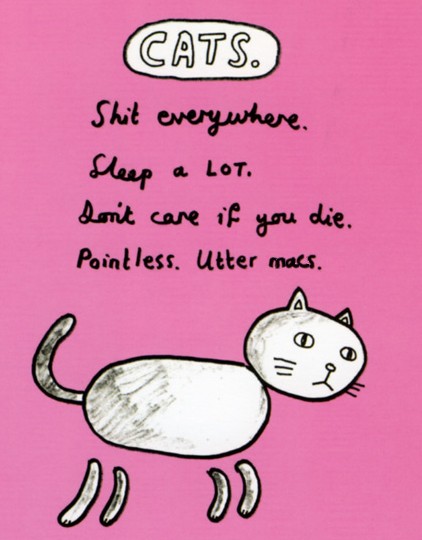 CATS.
Shit everywhere.
Sleep a LOT.
Don't care if you die.
Pointless. Utter macs.